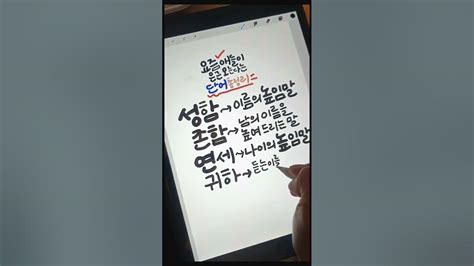 요즘 애들이
은근 모른다는
단어 총정리
성함→이름의 높임말
존함→남의 이름을
높여 드리는 말
연세→나이의 높임말
귀하→듣는이를